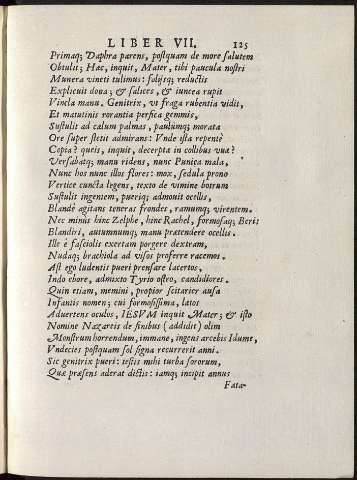 LIBER VII. 125
Primaq; Daphra parens, postquam de more salutem
Obtulit; Hæc, inquit, Mater, tibi paucula nostri
Munera vineti tulimus: soliisq; reductis
Explicuit dona; & salices, & iuncea rupit
Vincla manu. Genitrix, vt fraga rubentia vidit,
Et matutinis rorantia persica gemmis,
Sustulit ad cælum palmas, paulumq; morata
Ore super stetit admirans: Vnde ista repentè
Copia? queis, inquit, decerpta in collibus vua?
Versabatq; manu ridens, nunc Punica mala,
Nunc hos nunc illos flores: mox, sedula prono
Vertice cuncta legens, texto de vimine botrum
Sustulit ingentem, pueriq; admouit ocellis,
Blandè agitans teneras frondes, ramumq; virentem.
Nec minus hinc Zelphe, hinc Rachel, formosaq; Beris
Blandiri, autumnumq; manu prætendere ocellis.
Ille è fasciolis exertam porgere dextram,
Nudaq; brachiola ad visos proferre racemos.
Ast ego ludentis pueri prensare lacertos,
Indo ebore, admixto Tyrio ostro, candidiores.
Quin etiam, memini, propior scitarier ausa
Infantis nomen; cui formosissima, latos
Aduertens oculos, IESVM inquit Mater; & isto
Nomine Nazareis de finibus (addidit) olim
Monstrum horrendum, immane, ingens arcebis Idume,
Vndecies postquam sol signa recurrerit anni.
Sic genitrix pueri: testis mihi turba sororum,
Quæ præsens aderat dictis: iamq; incipit annus
Fata-